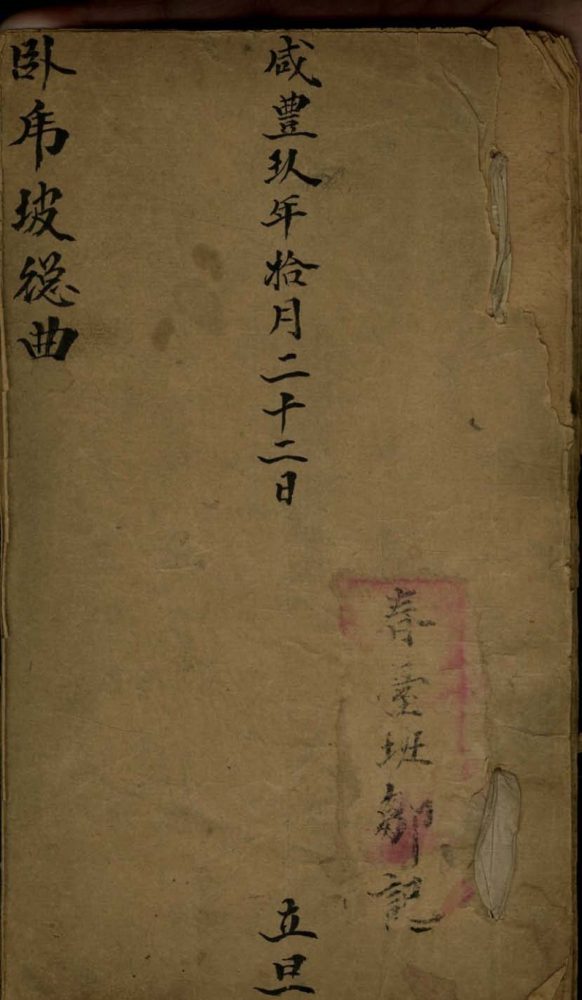 春臺班鄒記
咸豊玖年拾月二十二日
立旦
卧虎坡總曲